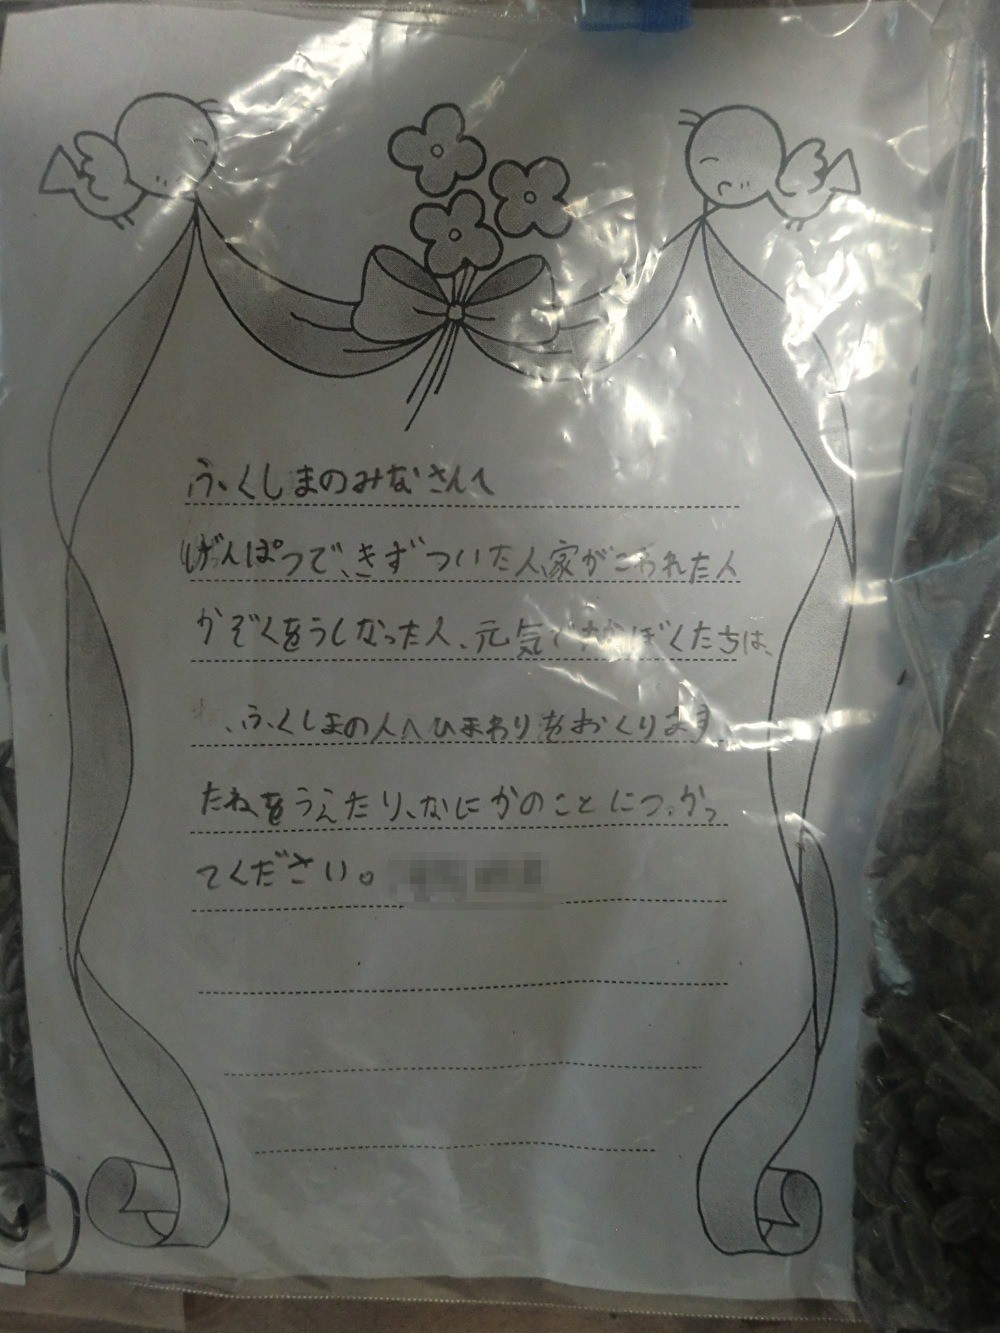 ふくしまのみなさんへ
げんぱつで、きずついた人、家がこわれた人
かぞくをうしなった人、元気ですかぼくたちは、
、ふくしまの人へひまわりをおくります。
たねをうえたり、なにかのことにつかっ
てください。